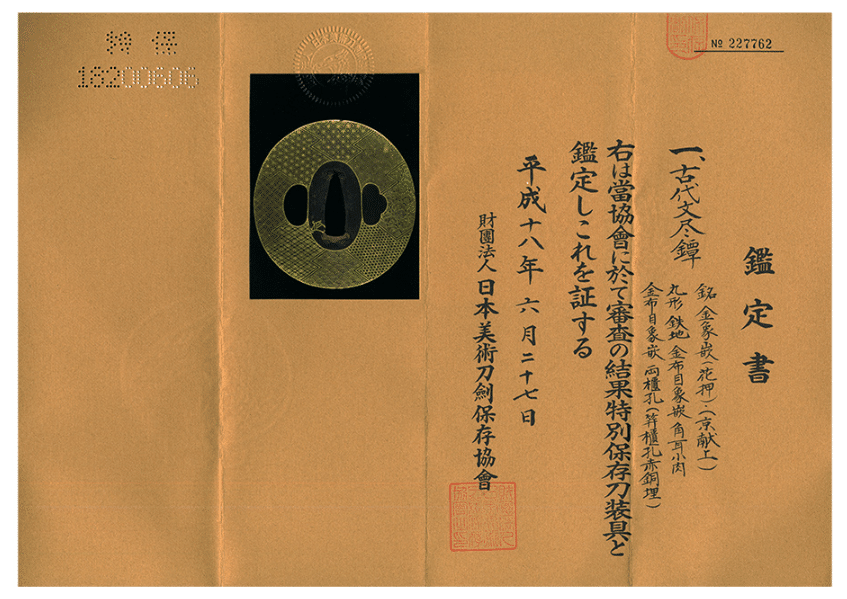 № 227762
鑑定書
一、古代文尽鐔
銘 金象嵌(花押)(京献上)
丸形 鉄地 金布目象嵌 角耳小肉
金布目象嵌 両櫃孔(笄櫃孔赤銅埋)
右は當協會に於て審査の結果特別保存刀装具と
鑑定しこれを証する
平成十八年 六月二十七日
財團法人 日本美術刀劍保存協會
特 保
18200606